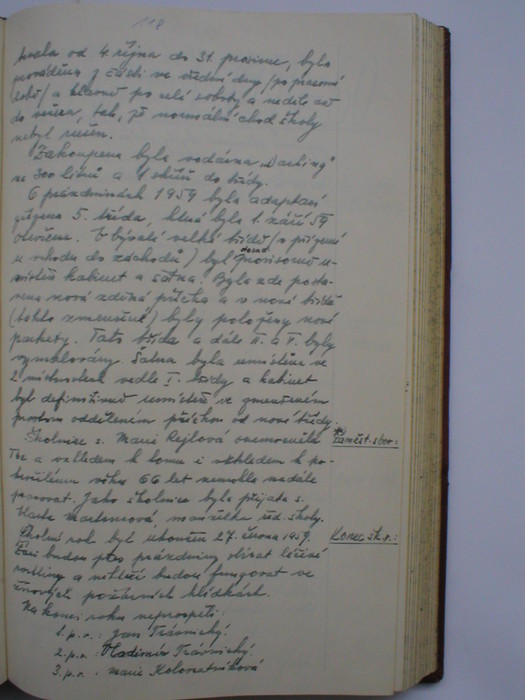 118
trvala od 4. října do 31. prosince, byla
prováděna z části ve všední dny /po pracovní
době/ a hlavně po celé soboty a neděle až
do večera, tak, že normální chod školy
nebyl rušen.
Zakoupena byla vodárna „Darling"
na 300 litrů a 1 skříň do třídy.
O prázdninách 1959 byla adaptací
zřízena 5. třída, která byla 1. září 59
otevřena. V bývalé velké třídě /v přízemí
u vchodu do záchodů/ byl dosud provisorně u-
místěn kabinet a šatna. Byla zde posta-
vena nová zděná příčka a v nové třídě
(takto zmenšené) byly položeny nové
parkety. Tato třída a dále II. a V. byly
vymalovány. Šatna byla umístěna ve
2 místnostech vedle I. třídy a kabinet
byl definitivně umístěn ve zmenšeném
prostoru odděleném příčkou od nové třídy.
Školnice s. Marie Rejlová onemocněla
Zaměst. sbor:
Tbc a vzhledem k tomu i vzhledem k po-
kročilému věku 66 let nemohla nadále
pracovat. Jako školnice byla přijata s.
Vlasta manželka řed. školy.
Školní rok byl ukončen 27. června 1959.
Konec šk. r.:
Žáci budou přes prázdniny sbírat léčivé
rostliny a někteří budou fungovat ve
žňových požárních hlídkách.
Na konci roku neprospěli:
1. p. o.: Jan Trávnický.
2. p. o.: Vladimír Trávnický.
3. p. o.: Marie Kolomazníková